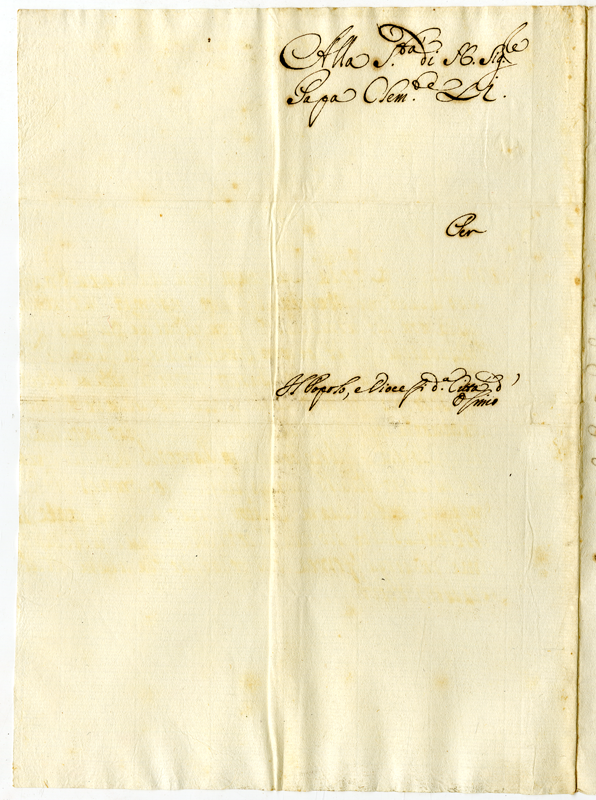 Alla S.tà di N. Sig.re
Papa Clem.te XI.
Per
Il Popolo, e Diocesi d.a Città d'
Osimo